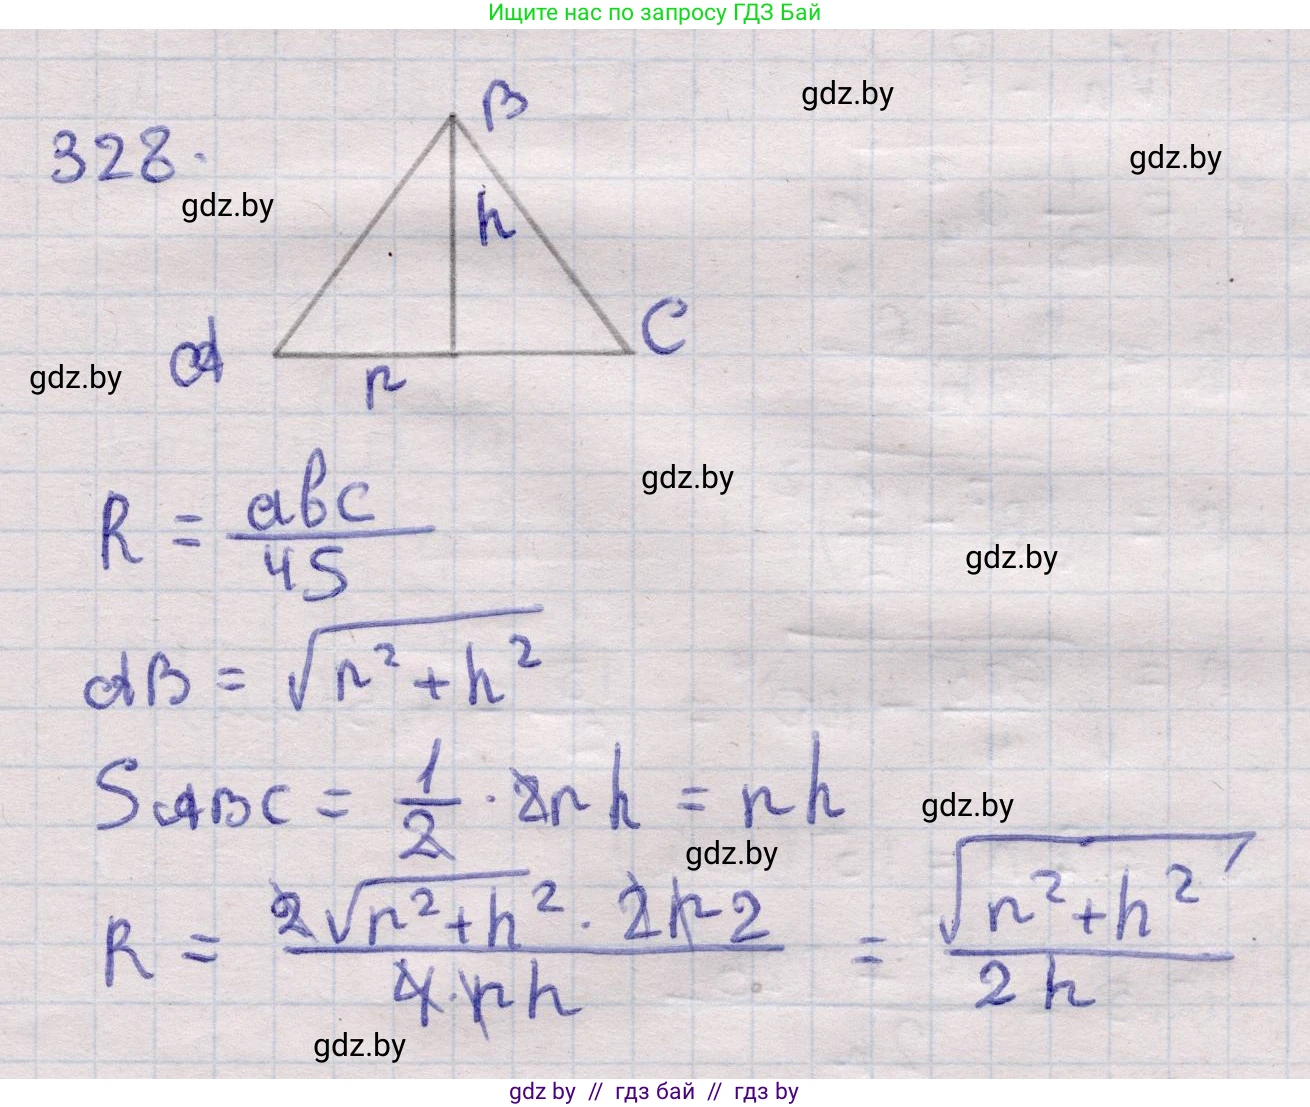 Ищите нас по запросу ГДЗ Бай
328.
B
gdz.by
gdz.by
gdz.by
h
A
C
gdz.by
r
R = abc / 4S
gdz.by
gdz.by
AB = √(r² + h²)
S ABC = 1/2 · 2rh = rh
gdz.by
gdz.by
R = 2√(r² + h²) · 2r2 / 4·rh = √(r² + h²) / 2h
gdz.by
gdz by // гдз бай // гдз by